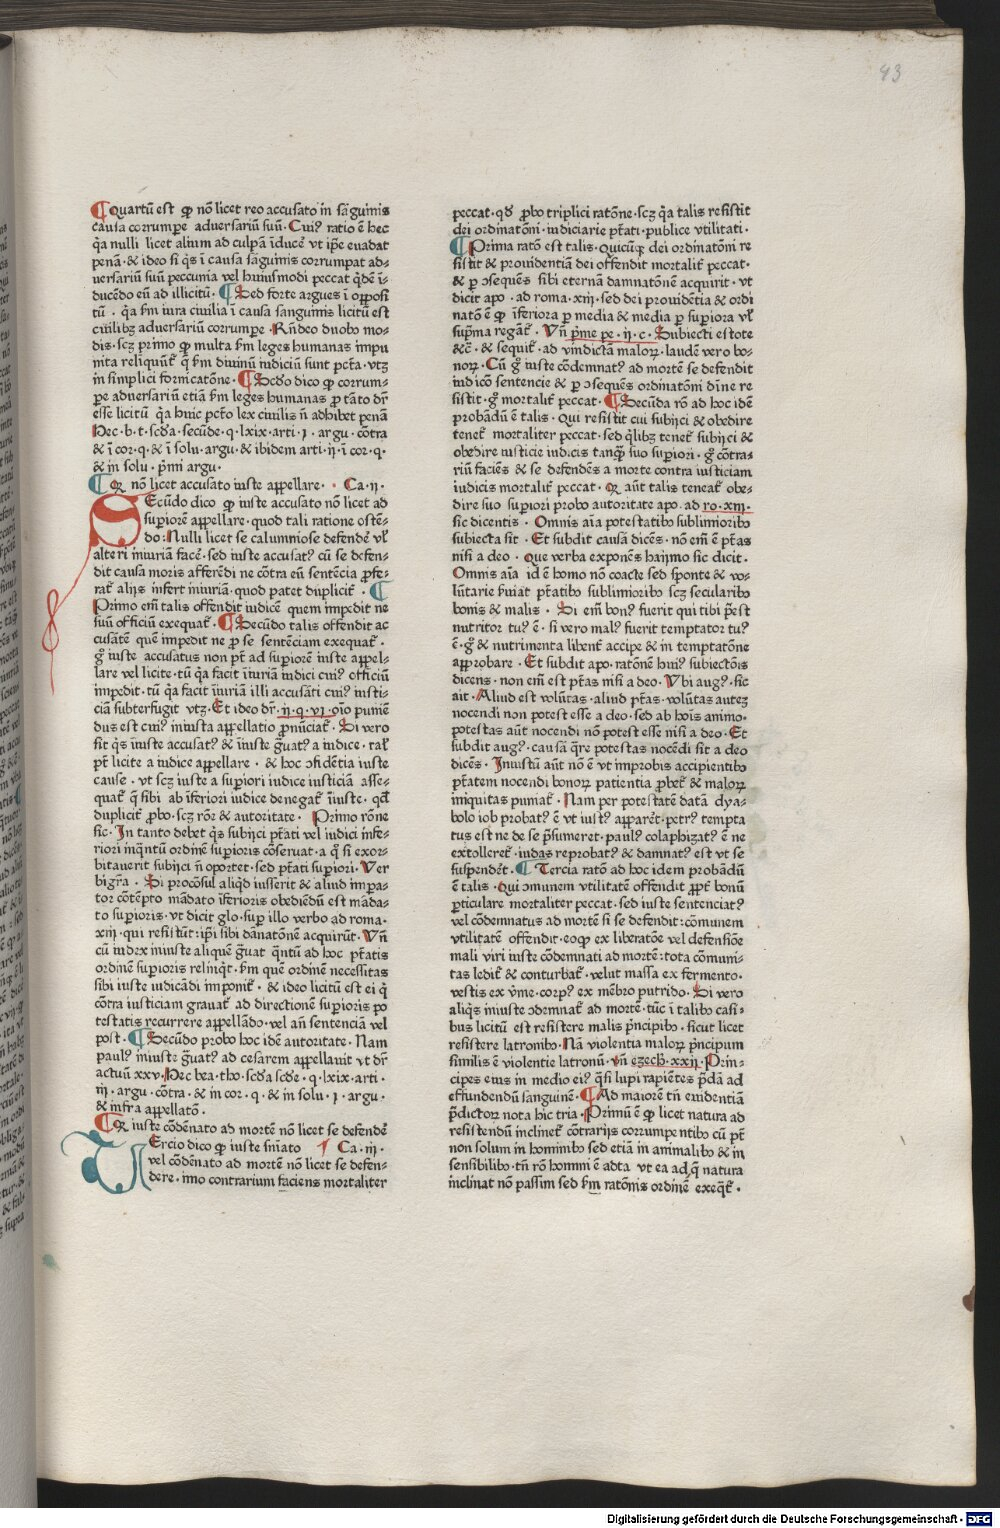 43
¶ Quartū est ꝙ nō licet reo accusato in sāguinis
causa corrumpe aduersariū suū. Cuiꝰ ratio ē hec
qͣa nulli licet alium ad culpā īducē vt ip̄e euadat
penā. & ideo si qͥs ī causa sāguinis corrumpat ad-
uersariū suū peccunia vel huiusmodi peccat qͥdē ī-
ducēdo eū ad illicitū. ¶ Sed forte argues ī opposi
tū. qͣa ẜm iura ciuilia ī causa sanguinis licitū est
cuilibꝫ aduersariū corrumpe. Rn̄deo duobꝰ mo-
dis. scꝫ primo ꝙ multa ẜm leges humanas impu
nita reliquūt̄ q̄ ẜm diuinū iudiciū sunt pctā. vtꝫ
in simplici fornicatōne. ¶ Scdo dico ꝙ corrum-
pe aduersariū etiā ẜm leges humanas ꝓ tāto dr̄
esse licitū qͣa huic pctō lex ciuilis n̄ adhibet penā
Hec. b. t. scd̄a. secūde. q. lxix. arti. ı. argu. cōtra
& ī cor. q. & ī solu. argu. & ibidem arti. ıı. ī cor. q.
& in solu. pͥmi argu.
¶ Qꝛ nō licet accusato iuste appellare. Ca. ıı.
SEcūdo dico ꝙ iuste accusato nō licet ad
superiorē appellare. quod tali ratione ostē-
do: Nulli licet se calumniose defendē vl̓
alteri iniuriā facē. sed iuste accusatꝰ cū se defen-
dit causa moris afferēdi ne cōtra eū sentēcia ꝓfe-
rat̄ alijs infert iniuriā. quod patet duplicit̄. ¶
Primo em̄ talis offendit iudicē quem impedit ne
suū officiū exequat̄. ¶ Secūdo talis offendit ac
cusatē quē impedit ne ꝑ se sentēciam exequat̄.
gͦ iuste accusatus non pt̄ ad superiorē iuste appel-
lare vel licite. tū qͣa facit īiuriam iudici cuiꝰ officiū
impedit. tū qͣa facit īiuriam illi accusāti cuiꝰ iusti-
ciā subterfugit vtꝫ. Et ideo dr̄. ıı. q. vı. oīo punien
dus est cuiꝰ iniusta appellatio ꝓnūciat̄. Si vero
sit qͥs iniuste accusatꝰ & iniuste gͣuatꝰ a iudice. tal̓
pt̄ licite a iudice appellare. & hoc ꝯfidētia iuste
cause. vt scꝫ iuste a superiori iudice iusticiā asse-
quat̄ q̄ sibi ab īferiori iudice denegat̄ īiuste. qd̄
duplicit̄ ꝓbo. scꝫ rōe & autoritate. Primo rōne
sic. In tanto debet qͥs subijci ptāti vel iudici infe-
riori inqͣntū ordinē superioris cōseruat. a qͦ si exor-
bitauerit subijci n̄ oportet. sed ptāti superiori. Ver
bi gr̄a. Si procōsul aliqͥd iusserit & aliud impa-
tor cōtēpto mādato īferioris obediēdū est māda-
to superioris. vt dicit glo. sup illo verbo ad roma.
xııı. qui resistūt: ip̄i sibi dānatōnē acquirūt. Vn̄
cū iudex iniuste aliquē gͣuat qͣntū ad hoc ptātis
ordinē superioris relinqͥt. ẜm quē ordinē necessitas
sibi iuste iudicādi imponit̄. & ideo licitū est ei qͥ
cōtra iusticiam grauat̄ ad directionē superioris po
testatis recurrere appellādo. vel an̄ sentenciā vel
post. ¶ Secūdo probo hoc idē autoritate. Nam
paulꝰ iniuste gͣuatꝰ ad cesarem appellauit vt dr̄
actuū xxv. Hec bea. tho. scd̄a scd̄e. q. lxix. arti.
ııı. argu. cōtra. & in cor. q. & in solu. ı. argu.
& infra appellatō.
¶ Qꝛ iuste cōdēnato ad mortē nō licet se defendē
TErcio dico ꝙ iuste sn̄iato ¶ Ca. ııı.
vel cōdēnato ad mortē nō licet se defen-
dere. imo contrarium faciens mortaliter
peccat. qd̄ ꝓbo triplici ratōne. scꝫ qͣa talis resistit
dei ordinatōni. iudiciarie ptāti. publice vtilitati.
¶ Prima ratō est talis. Quicūqꝫ dei ordinatōni re
sistit & prouidentiā dei offendit mortalit̄ peccat.
& ꝑ ꝯsequēs sibi eternā damnatōnē acquirit. vt
dicit apo. ad roma. xııı. sed dei prouidētia & ordi
natō ē ꝙ īferiora ꝑ media & media ꝑ superiora vl̓
supͥma regāt̄. Vn̄ pͥme pe. ıı. c. Subiecti estote
&c̄. & sequit̄. ad vindictā maloꝝ. laudē vero bo-
noꝝ. Cū gͦ iuste cōdemnatꝰ ad mortē se defendit
iudicō sentencie & ꝑ ꝯsequēs ordinatōni diuīe re
sistit. gͦ mortalit̄ peccat. ¶ Secūda rō ad hoc idē
probādū ē talis. Qui resistit cui subijci & obedire
tenet̄ mortaliter peccat. sed qͥlibꝫ tenet̄ subijci &
obedire iusticie iudicis tanqͣꝫ suo superiori. gͦ cōtra-
riū faciēs & se defendēs a morte contra iusticiam
iudicis mortalit̄ peccat. Qꝛ aūt talis teneat̄ obe-
dire suo superiori probo autoritate apo. ad ro. xııı.
sic dicentis. Omnis aīa potestatibꝰ sublimioribꝰ
subiecta sit. Et subdit causā dicēs. nō em̄ ē ptās
nisi a deo. Que verba exponēs haijmo sic dicit.
Omnis aīa id ē homo nō coacte sed sponte & vo-
lūtarie ẜuiat ptātibꝰ sublimioribꝰ scꝫ secularibꝰ
bonis & malis. Si em̄ bonꝰ fuerit qui tibi pͥest
nutritor tuꝰ ē. si vero malꝰ fuerit temptator tuꝰ
ē. gͦ & nutrimenta libent̄ accipe & in temptatōne
approbare. Et subdit apo. ratōnē huiꝰ subiectōis
dicens. non em̄ est ptās nisi a deo. Vbi augꝰ. sic
ait. Aliud est volūtas. aliud ptās. volūtas auteꝫ
nocendi non potest esse a deo. sed ab hoīs animo.
potestas aūt nocendi nō potest esse nisi a deo. Et
subdit augꝰ. causā qͣre potestas nocēdi sit a deo
dicēs. Iniustū aūt nō ē vt improbis accipientibꝰ
ptātem nocendi bonoꝝ patientia ꝓbet̄ & maloꝝ
iniquitas puniat̄. Nam per potestatē datā dya-
bolo iob probatꝰ ē vt iustꝰ appareret. petrꝰ tempta
tus est ne de se pͥsumeret. paulꝰ colaphizatꝰ ē ne
extolleret̄. iudas reprobatꝰ & damnatꝰ est vt se
suspendēt. ¶ Tercia ratō ad hoc idem probādū
ē talis. Qui ꝯmunem vtilitatē offendit ꝓpt̄ bonū
ꝑticulare mortaliter peccat. sed iuste sentenciatꝰ
vel cōdemnatus ad mortē si se defendit: cōmunem
vtilitatē offendit. eoqꝫ ex liberatōe vel defensiōe
mali viri iuste cōdemnati ad mortē: tota cōmuni-
tas ledit̄ & conturbat̄. velut massa ex fermento.
vestis ex vͥme. corpꝰ ex mēbro putrido. Si vero
aliqͥs iniuste ꝯdemnat̄ ad mortē. tūc ī talibꝰ casi-
bus licitū est resistere malis pͥncipibꝰ. sicut licet
resistere latronibꝰ. Nā violentia maloꝝ pͥncipum
similis ē violentie latronū. vn̄ ezech. xxıı. Prin-
cipes eius in medio eiꝰ qͣsi lupi rapiētes pͥdā ad
effundendū sanguinē. ¶ Ad maiorē tn̄ euidentiā
pͥdictoꝝ nota hic tria. Primū ē ꝙ licet natura ad
resistendū inclinet̄ cōtrarijs corrumpentibꝰ cū pt̄
non solum in hominibꝰ sed etiā in animalibꝰ & in
sensibilibꝰ. tn̄ rō homini ē adta vt ea ad q̄ natura
inclinat nō passim sed ẜm ratōnis ordinē exeqͣt̄.
Digitalisierung gefördert durch die Deutsche Forschungsgemeinschaft - DFG